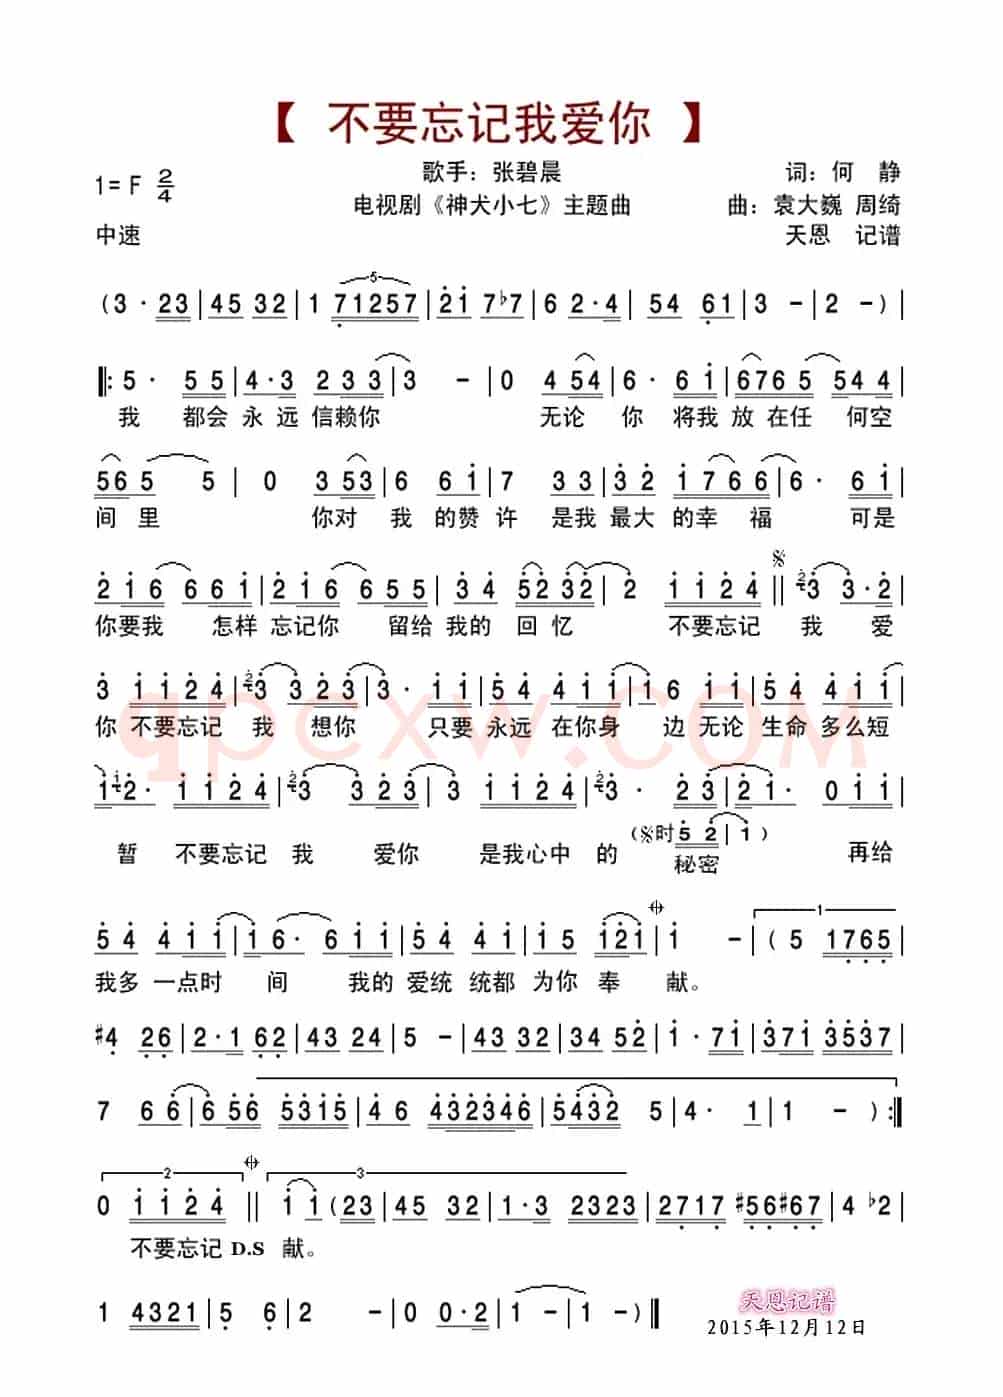 【 不要忘记我爱你 】
1= F 2/4 歌手：张碧晨 词：何 静
电视剧《神犬小七》主题曲 曲：袁大巍 周绮
中速 天恩 记谱
5
(3· 23|45 32|1 71257|21 7♭7|6 2·4|54 61|3 -|2 -)|
‖:5· 55|4·3 233|3 -|0 454|6· 61|6765 544|
我 都会 永 远 信赖你 无论 你 将我 放 在任 何空
565 5|0 353|6 61|7 33|32 1766|6· 61|
间 里 你对 我 的赞 许 是我 最大 的幸 福 可是
216 661|216 655|34 5232|2 1124‖ 23 3·2|
你要我 怎样 忘记你 留给 我的 回 忆 不要忘记 我 爱
3 1124|23 323|3· 11|54 441|16 54|54 11|
你 不要忘记 我 想你 只要 永远 在你身 边 无论 生命 多么短
1 12· 1124|23 323|3 1124|23· 23|21· 011|
(时 52|1)
暂 不要忘记 我 爱你 是我心中 的 秘密 再给
54 411|16· 611|54 41|15 121|1 -|(5 1765
1
我多 一点时 间 我的 爱统 统都 为你 奉 献。
#4 26|2·1 62|43 24|5 -|43 24|32 51|1· 71|371 3537|
7 66|656 5315|46 432346|5432 5|4· 1|1 -):‖
2 3
0 1124‖11(23|45 32|1·3 2323|2717 #56#67|4 ♭2|
不要忘记 D.S 献。
1 4321|5 6|2 -|0 0·2|1 -|1 -‖
天恩记谱
2015年12月12日
qpcxw.COM